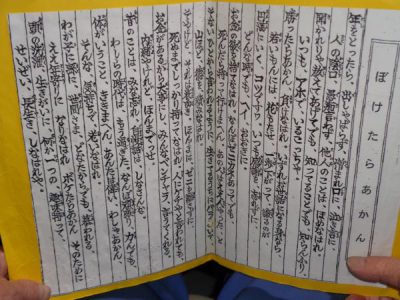 ぼけたらあかん
年をとったら、出しゃばらず、憎まれ口に、泣き言に、
人の陰口、愚痴言わず、他人のことは、ほめなはれ。
聞かれりゃ教えてあげてでも、知ってることでも、知らんふり、
いつも、アホで、いるこっちゃ。
勝ったらあかん、負けなはれ、いずれお世話になる身なら、
若いもんには、花もたせ、一歩さがって、譲るのが、
円満にいく、コツですわ。いつも感謝を、忘れずに、
どんな時でも、ヘイ、おおきに。
お金の欲を捨てなはれ、なんぼゼニカネあってでも、
死んだら、持って行けまへん。あの人はええ人やった、と
山ほど、徳を、積みなはれ。
そやけど、それは表向き、ほんまは、ゼニを離さずに、
死ぬまでしっかり持ってなはれ。人にケチやと言われても、
お金があるから大事にし、みんな、ベンチャラ、言うてくれる。
内緒やけれど、ほんまでっせ。
昔のことは、みな忘れ、自慢話は、しなはんな、
わしらの時代は、もう過ぎた、なんぼ頑張り、力んでも、
体がいうこと、ききまへん。あんたは偉い、わしゃあかん、
そんな、気持ちで、おりなはれ。
わが子に孫に、世間さま、どなたからでも、慕われる、
ええ年寄りに、なりなはれ。ボケたらあかん、そのために
頭の洗濯、生きがいに、何か一つの、趣味持って、
せいぜい、長生き、しなはれや。